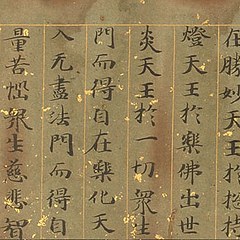 在勝妙天王於捴持
燈天王於樂佛出世
炎天王於一切衆生
門而得自在樂化天
入无盡法門而得自
量苦惱衆生慈悲智